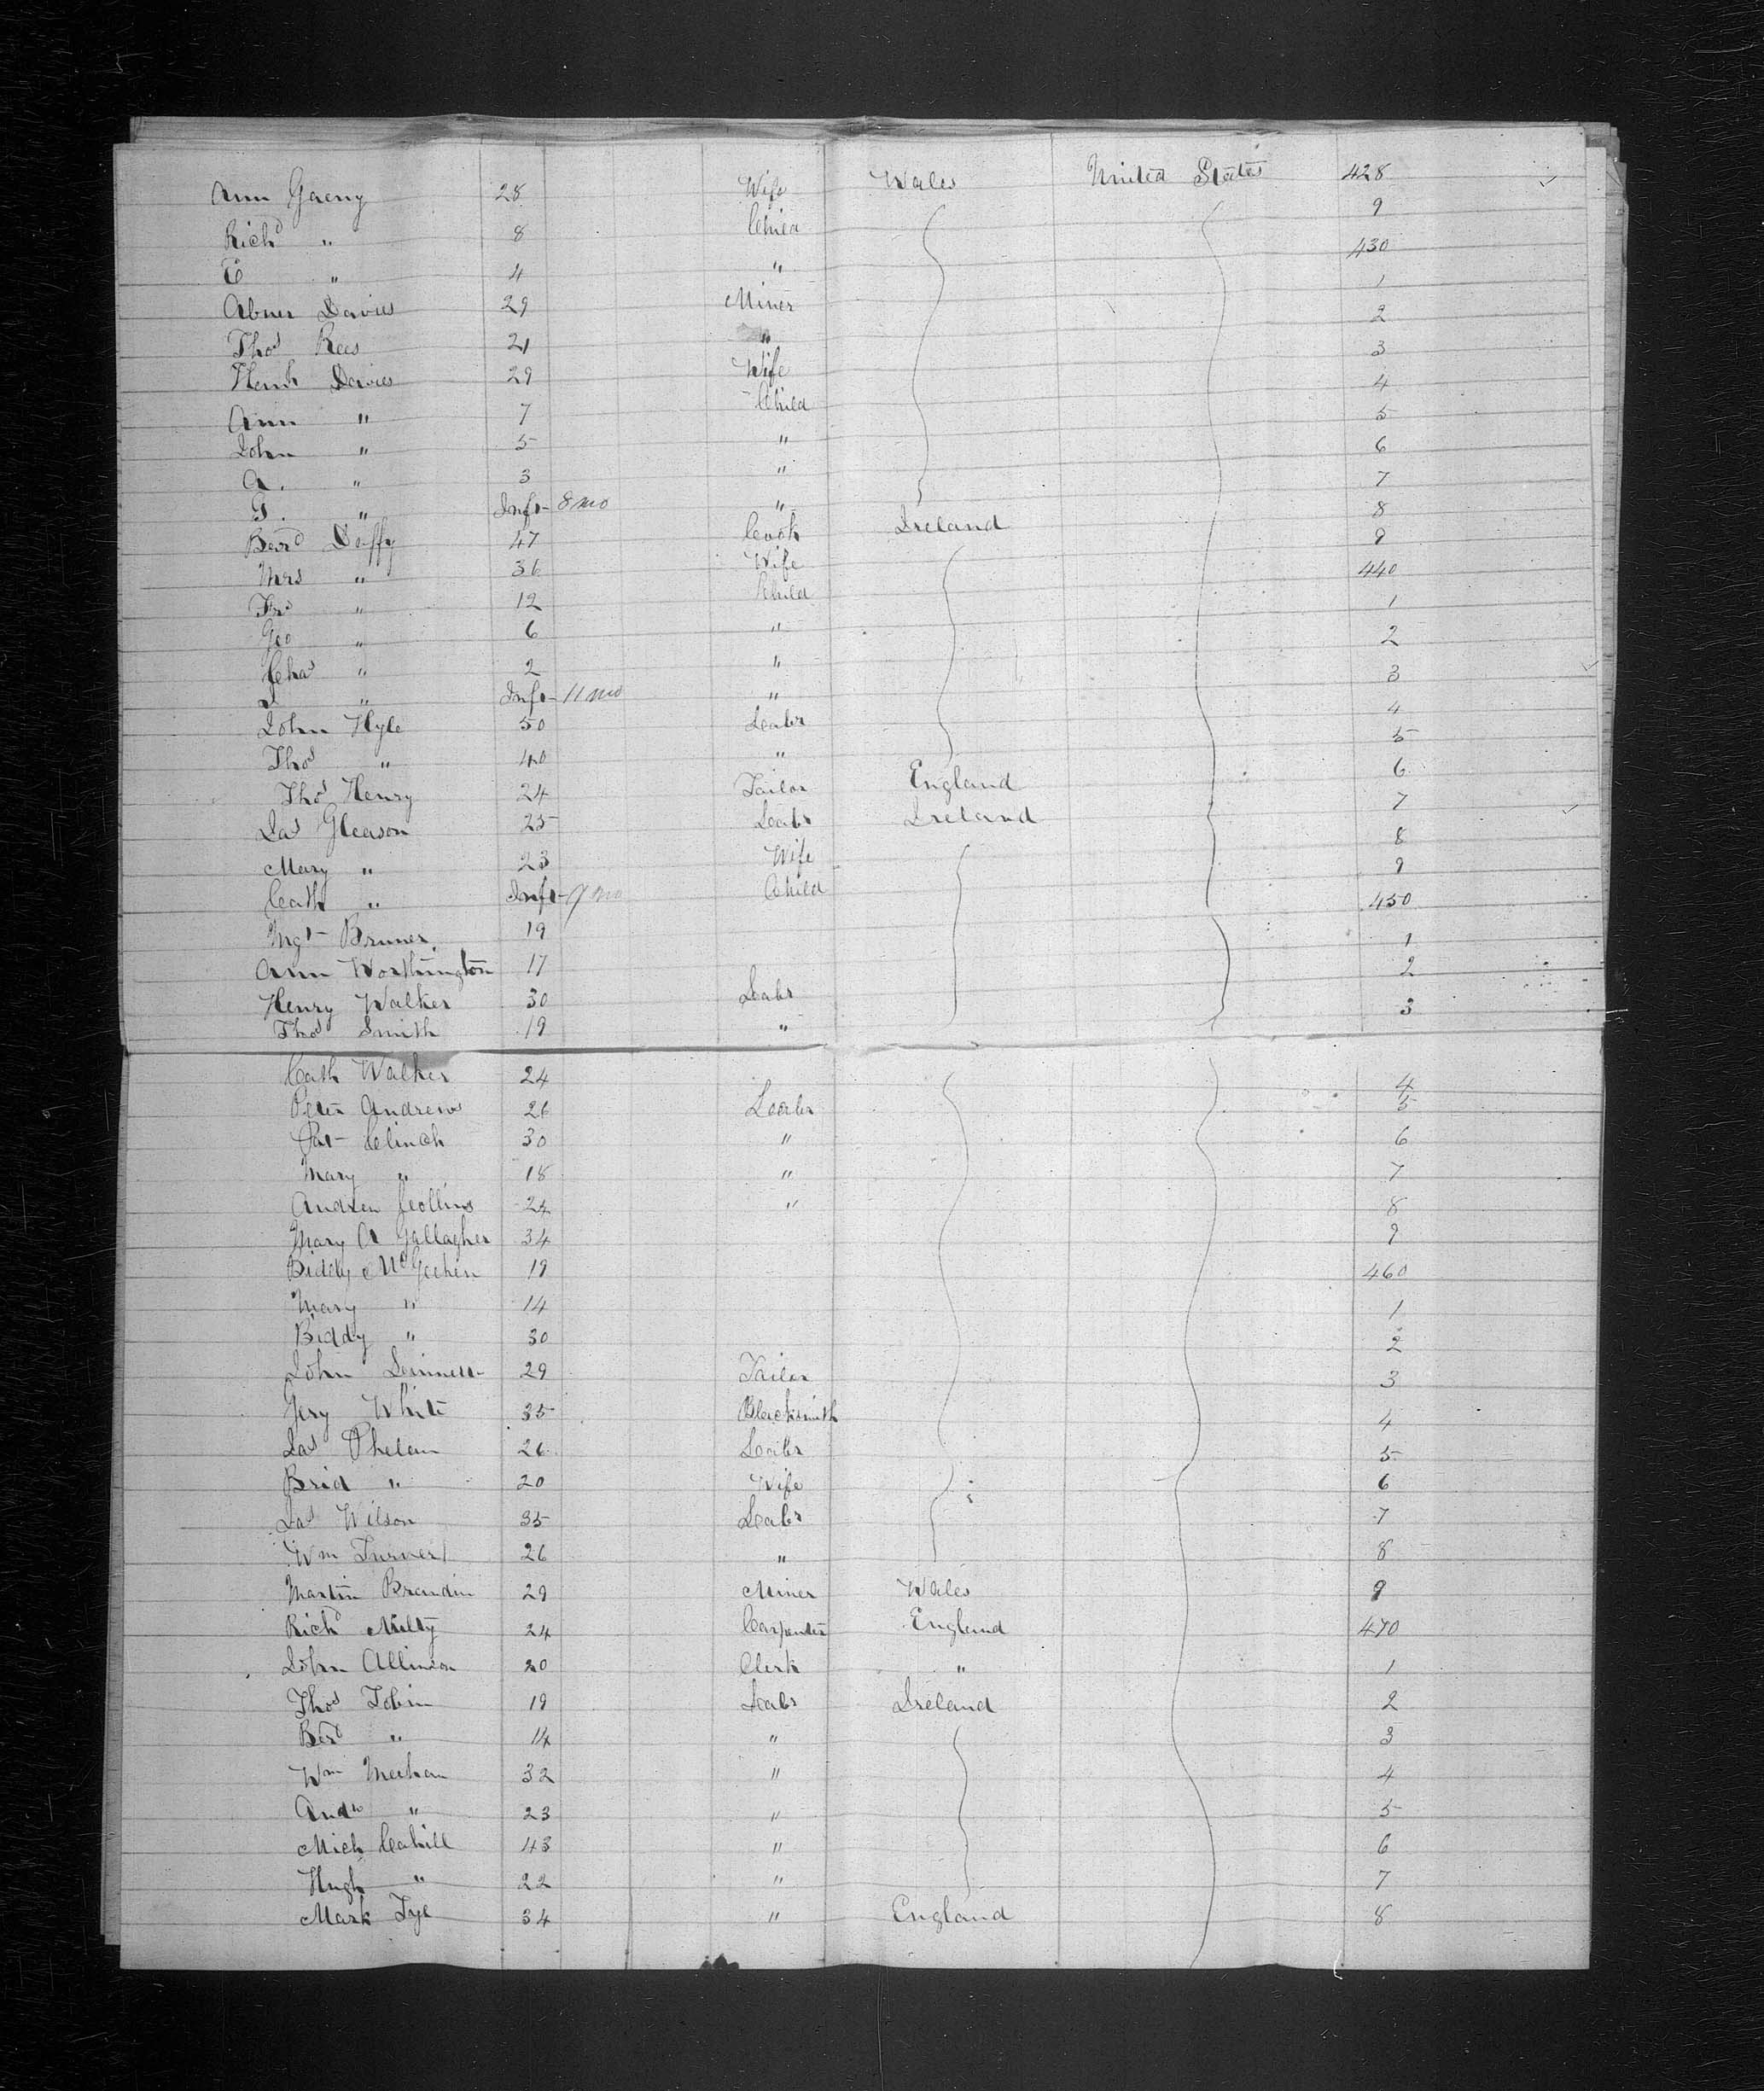 Ann Gaeny 28 Wife Wales United States 428
Richd " 8 Child 9
E " 4 " 430
Abner Davies 29 Miner 1
Thos Rees 21 " 2
Hanh Davies 29 Wife 3
Ann " 7 Child 4
John " 5 " 5
A. " 3 " 6
G. " Inft- 8 mo " 7
Berd Duffy 47 Cook Ireland 8
Mrs " 36 Wife 9
" 12 Child 440
Geo " 6 " 1
Chas " 2 " 2
J " Inft- 11 mo " 3
John Hyle 50 Labr 4
Thos " 40 " 5
Thos Henry 24 Tailor England 6
Jas Gleason 25 Labr Ireland 7
Mary " 23 Wife 8
Cath " Inft- 9 mo Child 9
Mgt- Bruner 19 450
Ann Worthington 17 1
Henry Walker 30 Labr 2
Thos Smith 19 " 3
Cath Walker 24 4
Peter Andrews 26 Labr 5
Pat- Clinch 30 " 6
Mary " 18 " 7
Andrew Collins 24 " 8
Mary A Gallagher 34 9
Biddy McGeehin 19 460
Mary " 14 1
Biddy " 30 2
John 29 Tailor 3
Jery White 35 Blacksmith 4
Jas Phelan 26 Labr 5
Brid " 20 Wife 6
Jas Wilson 35 Labr 7
Wm Turner 26 " 8
Martin Brandin 29 Miner Wales 9
Richd 24 Carpenter England 470
John Allinson 20 Clerk " 1
Thos Tobin 19 Labr Ireland 2
Berd " 14 " 3
Wm Meehan 32 " 4
Andw " 23 " 5
Mich Cahill 43 " 6
Hugh " 22 " 7
Mark Tye 34 " England 8